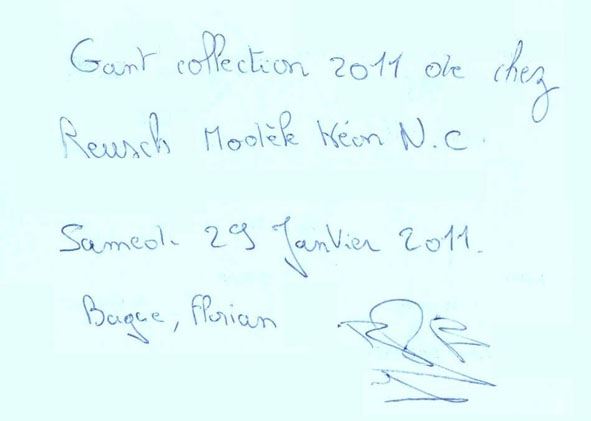 Gant collection 2011 de chez
Reusch Modèle Kéon N.C.
Samedi 29 Janvier 2011.
Bague, Florian